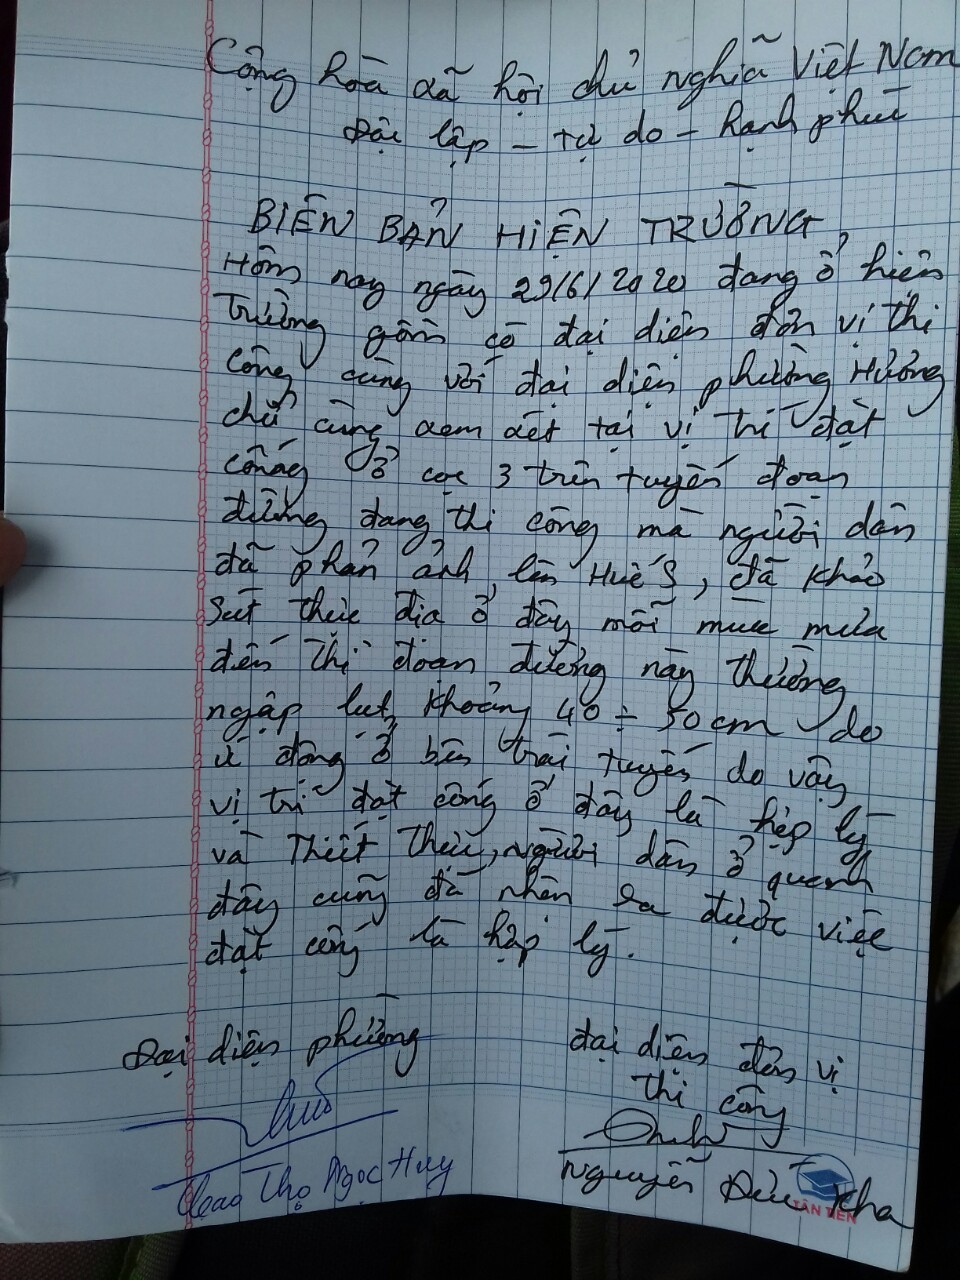 Cộng hòa xã hội chủ nghĩa Việt Nam
Độc lập - tự do - hạnh phúc
BIÊN BẢN HIỆN TRƯỜNG
Hôm nay ngày 29/6/2020 đang ở hiện
trường gồm có đại diện đơn vị thi
công cùng với đại diện phường Hương
chữ cùng xem xét tại vị trí đặt
cống ở cọc 3 trên tuyến đoạn
đường đang thi công mà người dân
đã phản ảnh lên Huế S, đã khảo
sát thực địa ở đây mỗi mùa mưa
đến thì đoạn đường này thường
ngập lụt khoảng 40 ÷ 50cm do
ứ đọng ở bên trái tuyến do vậy
vị trí đặt cống ở đây là hợp lý
và thiết thực, người dân ở quanh
đây cũng đã nhận ra được việc
đặt cống là hợp lý.
Đại diện phường
đại diện đơn vị
thi công
Thọ Ngọc Huy
Nguyễn Đức Kha
TÂN TIẾN